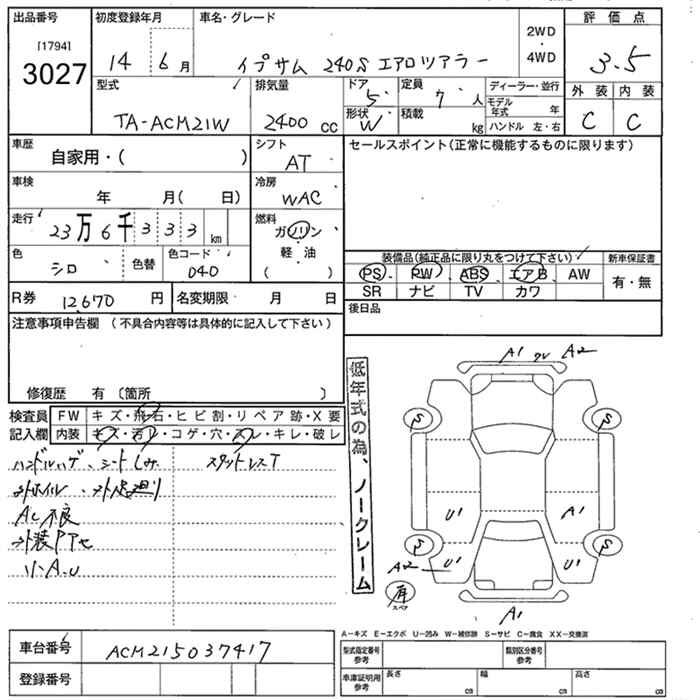 出品番号 初度登録年月 車名・グレード 2WD・4WD 評価点
[1794]
3027
14 6月 イプサム 240S エアロツアラー 3.5
型式 排気量 ドア 5 定員 7 人 ディーラー・並行 外装 内装
TA-ACM21W 2400 cc 形状 W 積載 kg モデル年式 年 C C
ハンドル 左・右
車歴 自家用・( ) シフト AT セールスポイント(正常に機能するものに限ります)
車検 年 月( 日) 冷房 WAC
走行 23万6千333km 燃料 ガソリン
軽油
( )
色 シロ 色替 色コード 040
装備品(純正品に限り丸をつけて下さい) 新車保証書
PS PW ABS エアB AW 有・無
SR ナビ TV カワ
R券 12,670 円 名変期限 月 日
後日品
注意事項申告欄(不具合内容等は具体的に記入して下さい)
修復歴 有〔箇所 〕
検査員 FW キズ・飛石・ヒビ割・リペア跡・X要
記入欄 内装 キズ・汚レ・コゲ・穴・スレ・キレ・破レ
ハンドルハゲ、シートしみ スタットレスT
AC不良
小A.U
低年式の為、ノークレーム
A1 A2
S S
U1 A1
S S
A2 U1 U1
スペア
A1
A-キズ E-エクボ U-凹み W-補修跡 S-サビ C-腐食 XX-交換済
車台番号 ACM215037417 型式指定番号 参考 類別区分番号 参考
登録番号 車庫証明用 参考 長さ cm 幅 cm 高さ cm